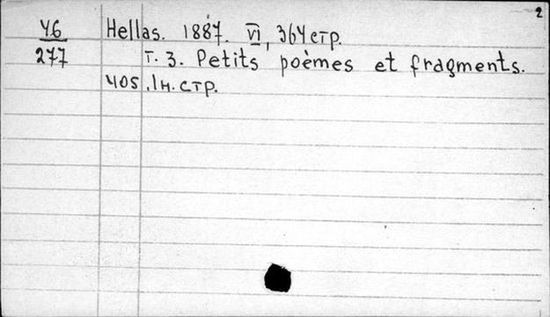 2
46
277
Hellas. 1887. VI, 364 стр.
т. 3. Petits poèmes et fragments.
405, 1н. стр.